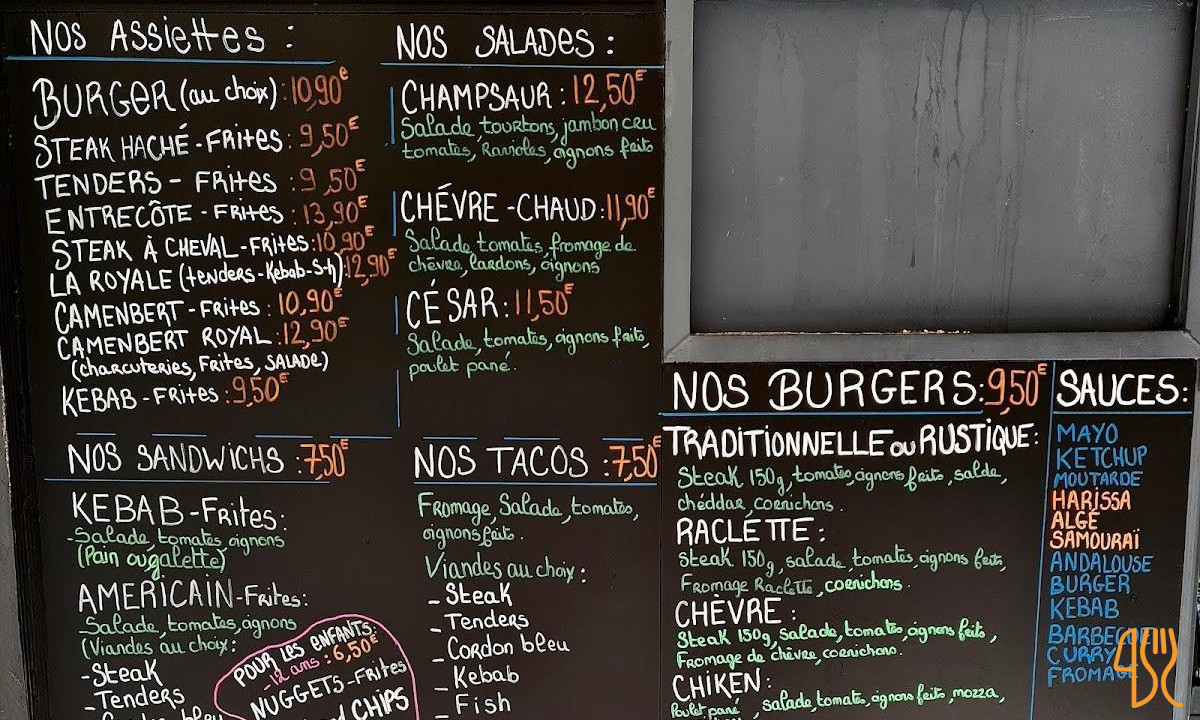 NOS ASSIETTES :
BURGER (au choix) : 10,90€
STEAK HACHÉ - FRITES : 9,50€
TENDERS - FRITES : 9,50€
ENTRECÔTE - FRITES : 13,90€
STEAK À CHEVAL - FRITES : 10,90€
LA ROYALE (tenders - Kebab - S-h) : 12,90€
CAMENBERT - FRITES : 10,90€
CAMENBERT ROYAL : 12,90€
(charcuteries, Frites, SALADE)
KEBAB - FRITES : 9,50€
NOS SALADES :
CHAMPSAUR : 12,50€
Salade, tourtons, jambon cru
tomates, Ravioles, oignons frits
CHÉVRE - CHAUD : 11,90€
Salade, tomates, fromage de
chèvre, lardons, oignons
CÉSAR : 11,50€
Salade, tomates, oignons frits,
poulet pané.
NOS SANDWICHS : 7,50€
KEBAB - Frites :
- Salade, tomates, oignons
(Pain ou galette)
AMERICAIN - Frites :
- Salade, tomates, oignons
(Viandes au choix :
- Steak
- Tenders
- Cordon bleu
POUR LES ENFANTS :
- 12 ans : 6,50€
NUGGETS - Frites
CHIPS
NOS TACOS : 7,50€
Fromage, Salade, tomates,
oignons frits.
Viandes au choix :
- Steak
- Tenders
- Cordon bleu
- Kebab
- Fish
NOS BURGERS : 9,50€
TRADITIONNELLE ou RUSTIQUE :
Steak 150g, tomates, oignons frits, salde,
chéddar, cornichons.
RACLETTE :
Steak 150g, salade, tomates, oignons frits,
Fromage Raclette, cornichons.
CHEVRE :
Steak 150g, salade, tomates, oignons frits,
Fromage de chèvre, cornichons.
CHIKEN :
Poulet pané, salade, tomates, oignons frits, mozza,
SAUCES :
MAYO
KETCHUP
MOUTARDE
HARISSA
ALGÉ
SAMOURAÏ
ANDALOUSE
BURGER
KEBAB
BARBECUE
CURRY
FROMAGE